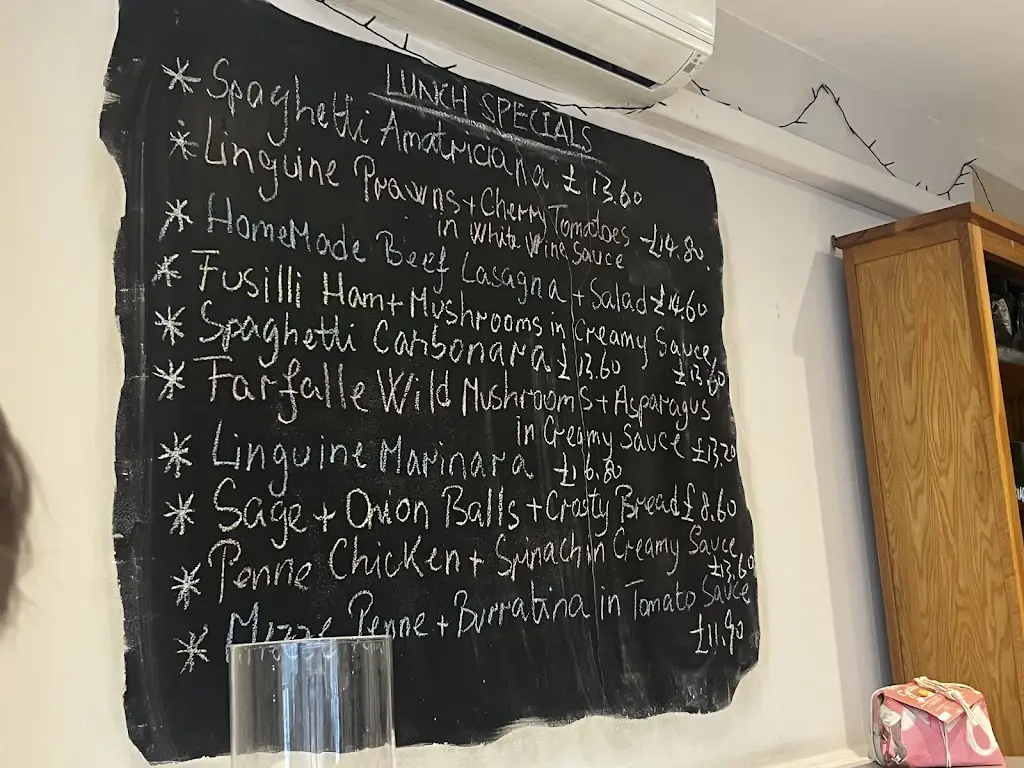 LUNCH SPECIALS
* Spaghetti Amatriciana £13.60
* Linguine Prawns + Cherry Tomatoes
in White Wine Sauce £14.80
* HomeMade Beef Lasagna + Salad £14.60
* Fusilli Ham + Mushrooms in Creamy Sauce
£13.60
* Spaghetti Carbonara £13.60
* Farfalle Wild Mushrooms + Asparagus
in Creamy Sauce £13.20
* Linguine Marinara £16.80
* Sage + Onion Balls + Crosty Bread £8.60
* Penne Chicken + Spinach in Creamy Sauce
£13.60
* Mezze Penne + Burratina in Tomato Sauce
£11.90